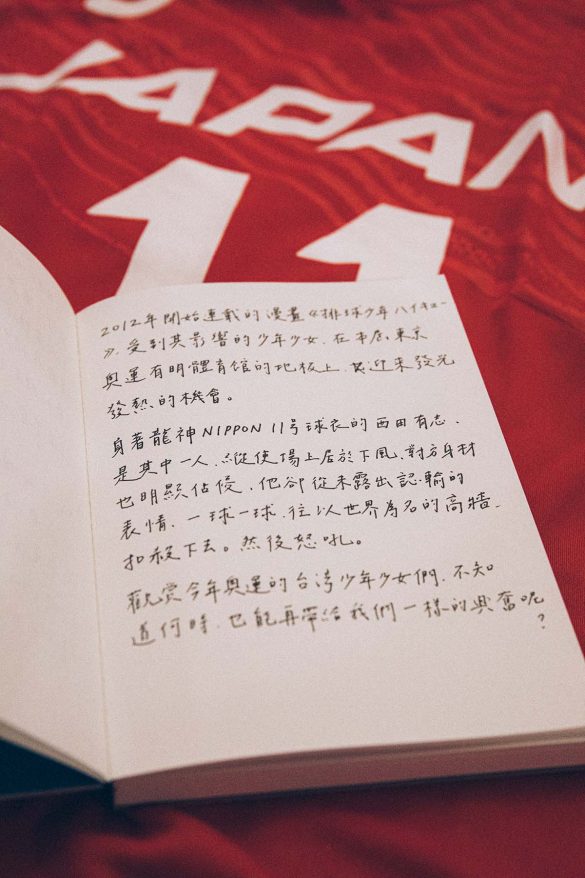 JAPAN
11
2012年開始連載的漫畫《排球少年ハイキュー
》,受到其影響的少年少女,在本屆東京
奧運有明體育館的地板上,也迎來發光
發熱的機會。
身著龍神NIPPON 11号球衣的西田有志,
是其中一人,縱使場上居於下風、對方身材
也明顯佔優,他卻從未露出認輸的
表情,一球一球,往以世界為名的高牆,
扣殺下去。然後怒吼。
觀賞今年奧運的台湾少年少女們,不知
道何時,也能再帶給我們一樣的興奮呢
?